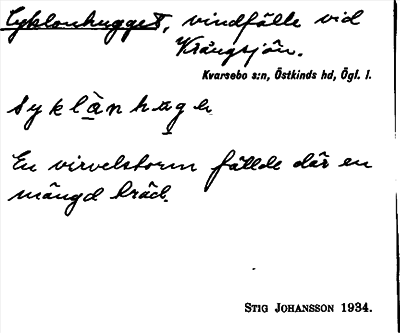 Cyklonhugget, vindfälle vid
Krångsjön.
Kvarsebo s:n, Östkinds hd, Ögl. l.
syklànhuge
En virvelstorm fällde där en
mängd träd.
STIG JOHANSSON 1934.